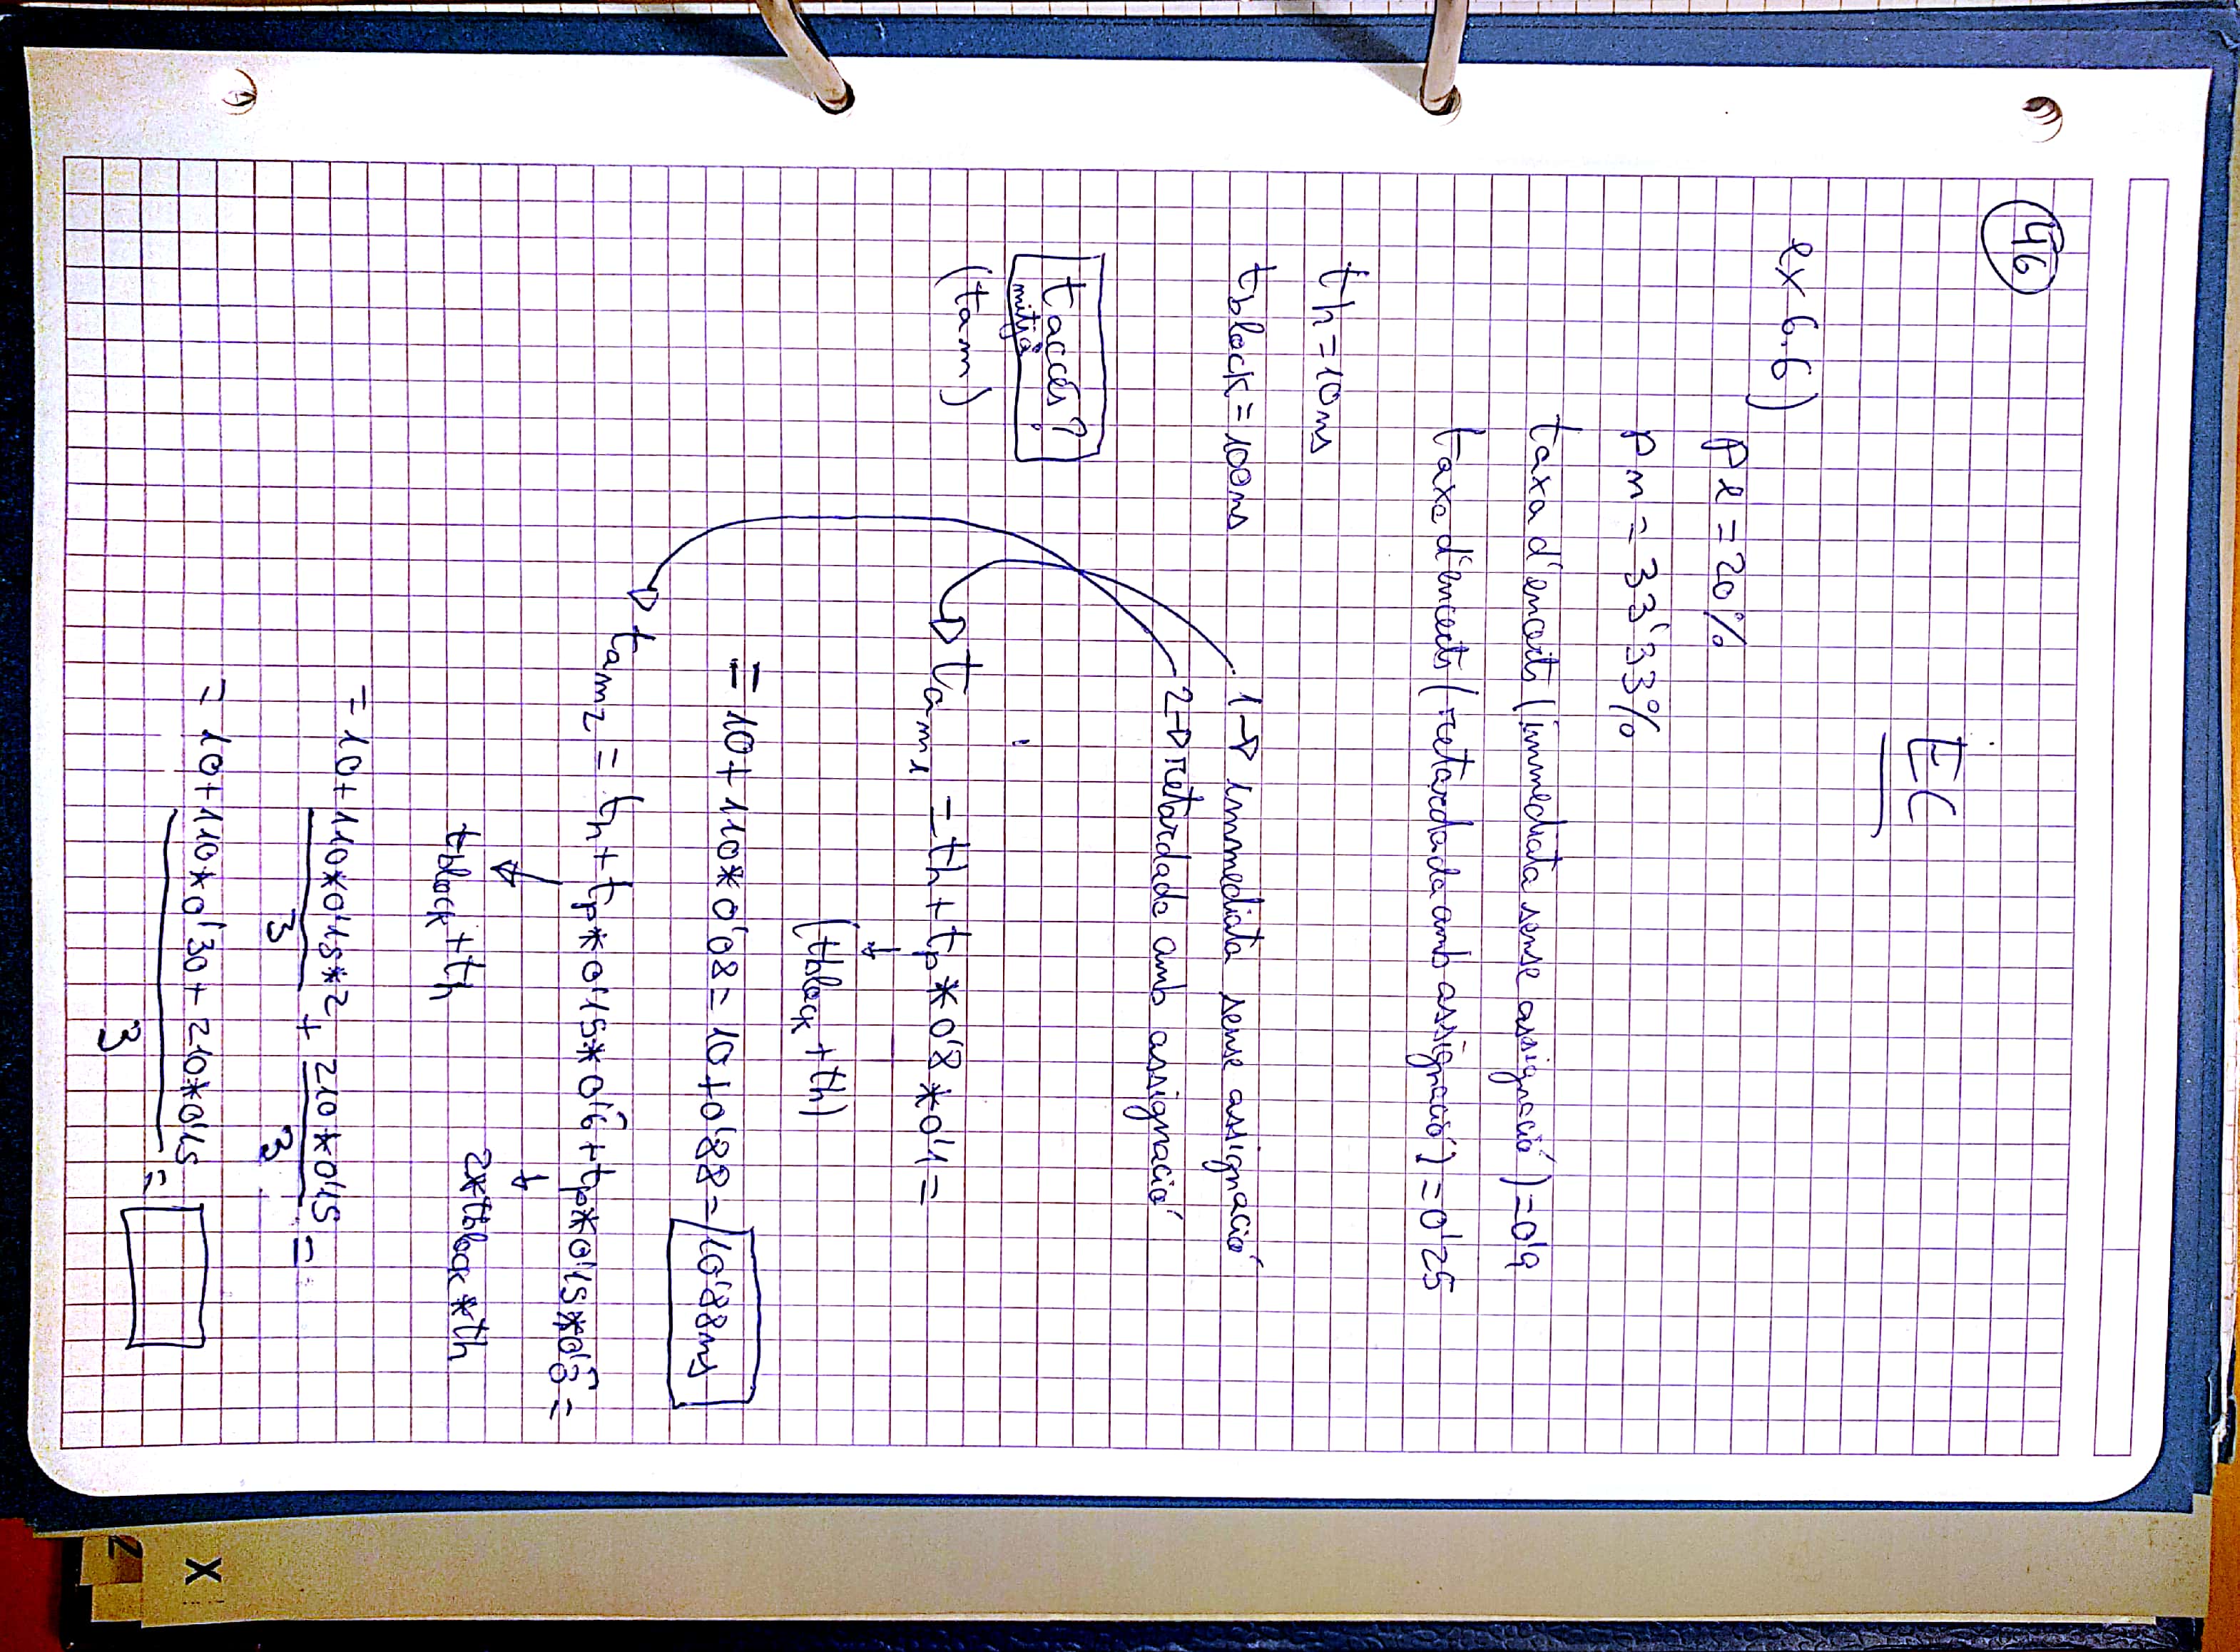 46
EC
ex 6.6)
pe = 20%
pm = 33'33%
taxa d'encerts (immediata sense assignació) = 0'9
taxa d'encerts (retardada amb assignació) = 0'25
th = 10ns
tblock = 100ns
1 → immediata sense assignació
2 → retardada amb assignació
taccés?
mitjà
(tam)
tam1 = th + tp * 0'8 * 0'1 =
(tblock + th)
= 10 + 110 * 0'08 = 10 + 0'88 = 10'88ns
tam2 = th + tp * 0'15 * 0'6̂ + tp * 0'15 * 0'3̂ =
tblock + th
2*tblock * th
= 10 + 110*0'15*2/3 + 210*0'15/3 =
= 10 + (110*0'30 + 210*0'15)/3 =
X
2